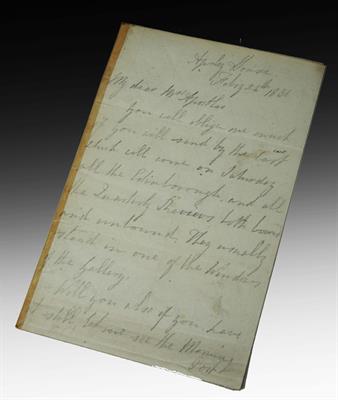 Apsley House
Feby 26th 1836
My dear Mrs Apostles
You will oblige me much
if you will send by the Cart
which will come on Saturday
all the Edinborough and all
the Quarterly Reviews both bound
and unbound. They usually
stand in one of the Windows
of the Gallery.
Will you also if you have
it still, let me see the Morning
Post